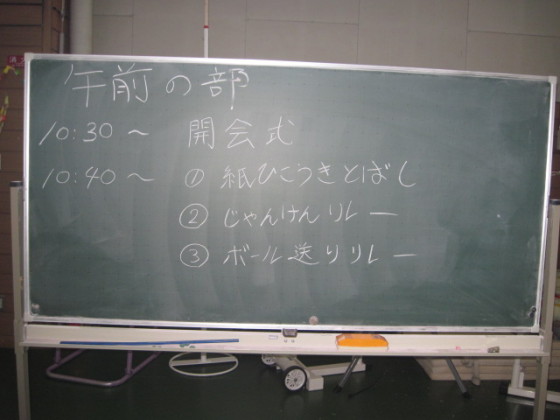 午前の部
10:30〜 開会式
10:40〜 ① 紙ひこうきとばし
② じゃんけんリレー
③ ボール送りリレー